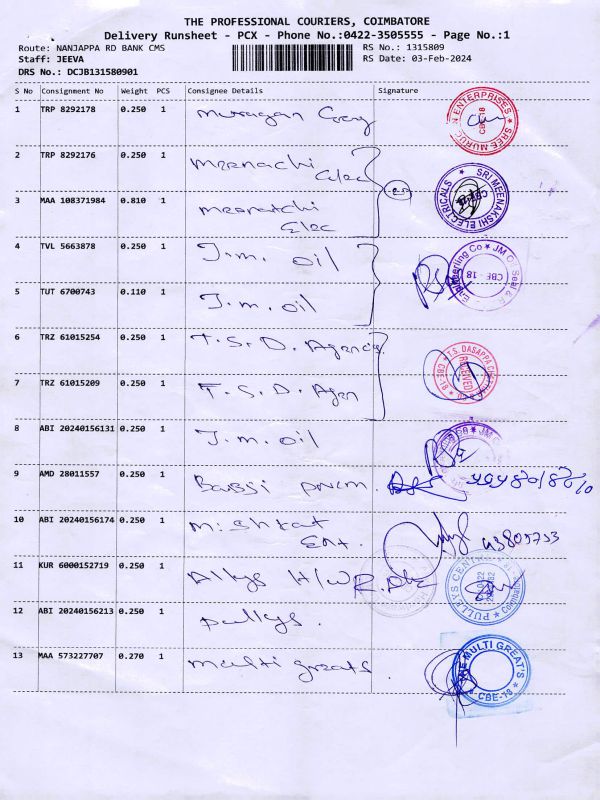 THE PROFESSIONAL COURIERS, COIMBATORE
Delivery Runsheet - PCX - Phone No.:0422-3505555 - Page No.:1
Route: NANJAPPA RD BANK CMS RS No.: 1315809
Staff: JEEVA RS Date: 03-Feb-2024
DRS No.: DCJB131580901
S No Consignment No Weight PCS Consignee Details Signature
1 TRP 8292178 0.250 1 murugan
2 TRP 8292176 0.250 1 meenachi
Elec
3 MAA 108371984 0.810 1 meenatchi
Elec
4 TVL 5663878 0.250 1 J.m. oil
5 TUT 6700743 0.110 1 J.m. oil
6 TRZ 61015254 0.250 1 T.S.D. Agencies
7 TRZ 61015209 0.250 1 T.S.D. Agen
8 ABI 20240156131 0.250 1 J.m. oil
9 AMD 28011557 0.250 1
10 ABI 20240156174 0.250 1 mishkat
Ent.
11 KUR 6000152719 0.250 1 H/W
12 ABI 20240156213 0.250 1 pullys.
13 MAA 573227707 0.270 1 multi greats.
SREE MURUGAN ENTERPRISES
CBE-18
SRI MEENAKSHI ELECTRICALS
JM Oil Seal &
Engineering Co
CBE - 18
T.S. DASAPPA
RECEIVED
PULLEYS
THE MULTI GREAT'S
CBE-18